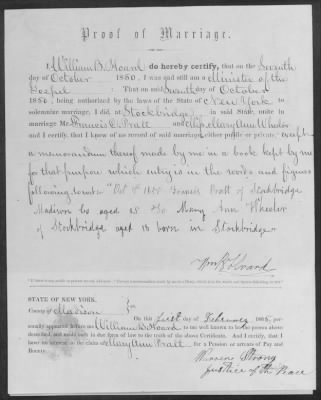 Proof of Marriage.
I, William B. Hoard do hereby certify, that on the Seventh
day of October 1850, I was and still am a Minister of the
Gospel : That on said Seventh day of October
1850, being authorized by the laws of the State of New York to
solemnize marriage, I did, at Stockbridge in said State, unite in
marriage Mr. Francis C. Pratt and Miss Mary Ann Wheeler
and I certify, that I know of no record of said marriage, either public or private, except
a memorandum thereof made by me in a book kept by me
for that purpose which entry is in the words and figures
following to wit: "Oct 7 1850 Francis Pratt of Stockbridge
Madison Co aged 28 Mary Ann Wheeler
of Stockbridge aged 18 born in Stockbridge"
Wm B. Hoard
STATE OF NEW YORK.
County of Madison ss
On this first day of February 1865, per-
sonally appeared before me William B. Hoard to me well known to be the person above
described, and made oath in due form of law to the truth of the above Certificate. And I certify, that I
have no interest in the claim of Mary Ann Pratt for a Pension or arrears of Pay and
Bounty.
Strong
Justice of the Peace